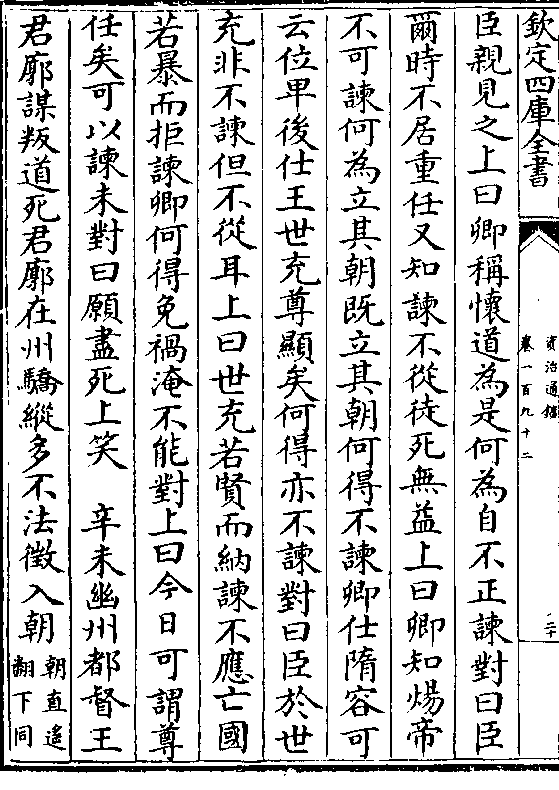 欽定四庫全書
資治通鑑
卷一百九十二
二十
臣親見之上曰卿稱懷道為是何為自不正諫對曰臣
爾時不居重任又知諫不從徒死無益上曰卿知煬帝
不可諫何為立其朝既立其朝何得不諫卿仕隋容可
云位卑後仕王世充尊顯矣何得亦不諫對曰臣於世
充非不諫但不從耳上曰世充若賢而納諫不應亡國
若暴而拒諫卿何得免禍淹不能對上曰今日可謂尊
任矣可以諫未對曰願盡死上笑 辛未幽州都督王
君廓謀叛道死君廓在州驕縱多不法徵入朝朝直遥
翻下同